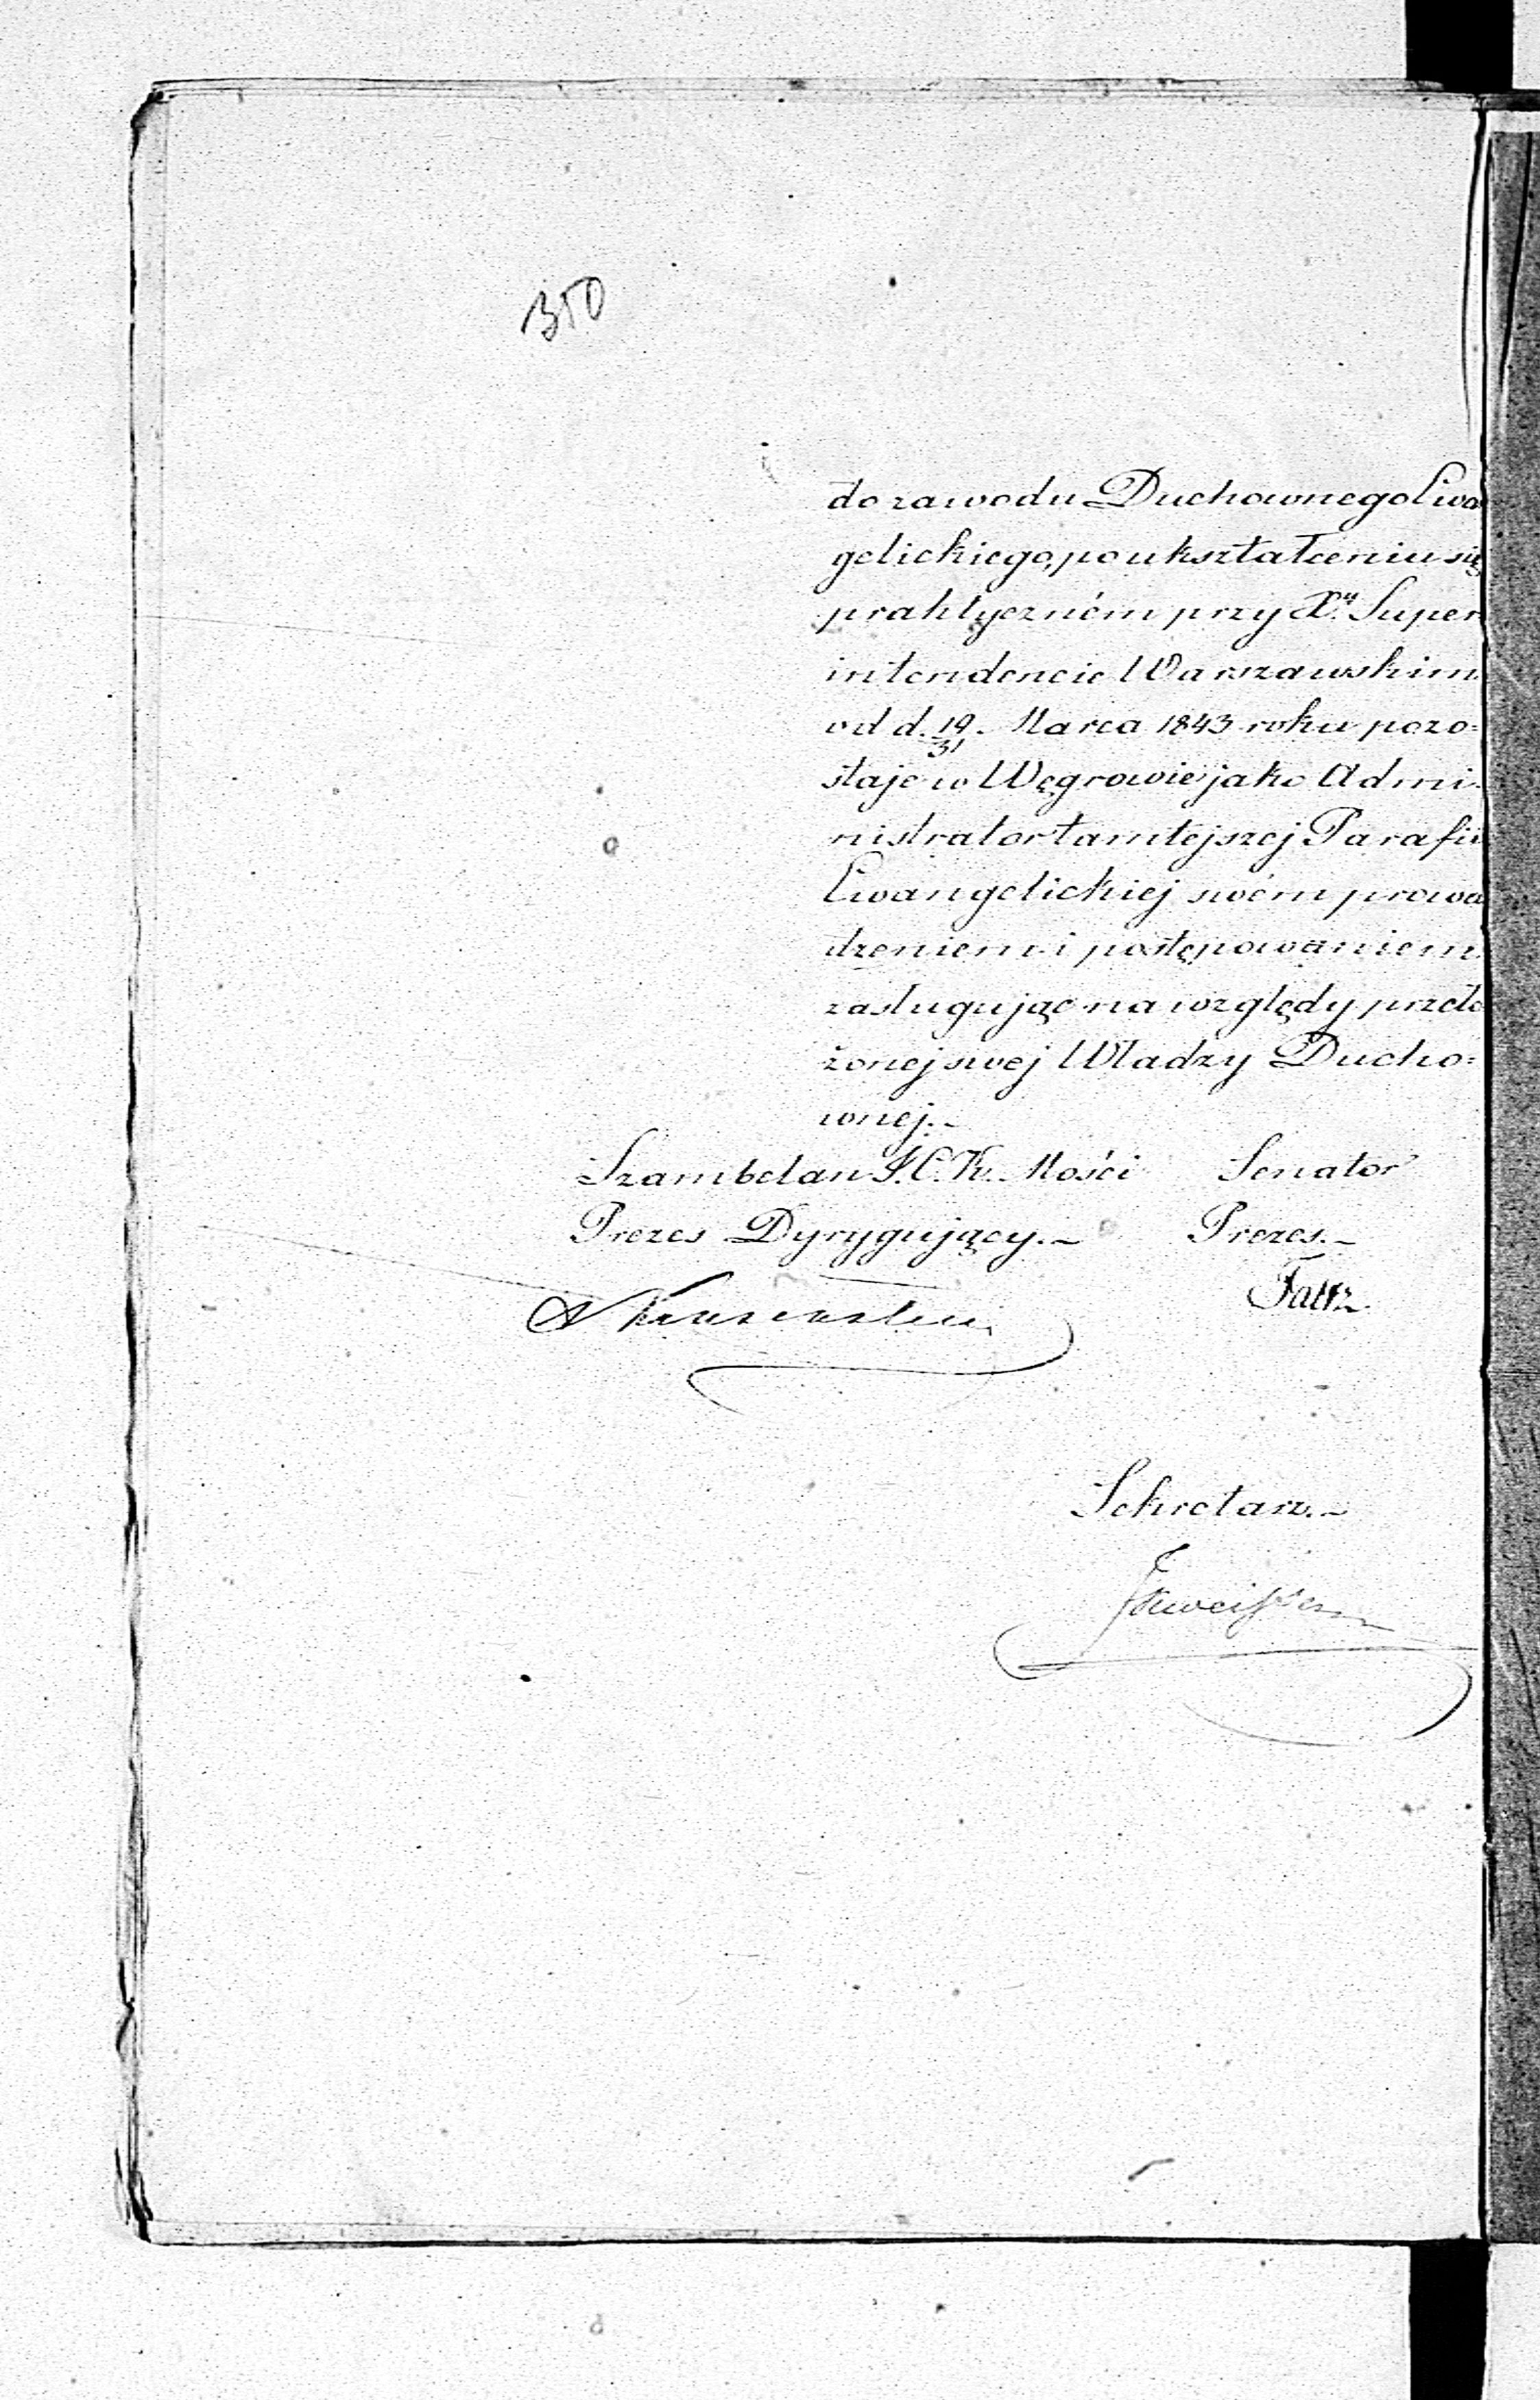 350
do zawodu Duchownego Ewa
gelickiego, po ukształceniu się
praktyczném przy Xu Super
intendencie Warszawskim
od d. 19/31. Marca 1843 roku pozo=
staje w Węgrowie jako Admi-
nistrator tamtejszej Parafii
Ewangelickiej swém prowa
dzeniem i postępowaniem
zasługując na względy przeło
żonej swej Władzy Ducho=
wnej.-
Szambelan J.C.K. Mości Senator
Prezes Dyrygujący.- Prezes.-
Faltz.
Sekretarz.-